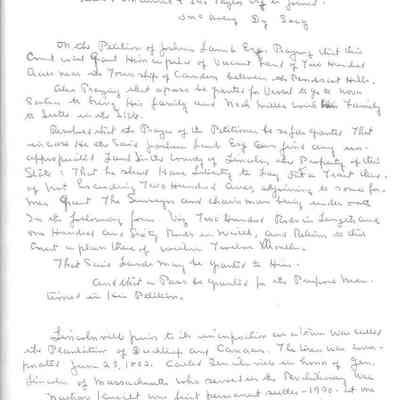 J Mc Avery Dy Secy
On the Petition of Joshua Lamb Esq. Praying that this
Court will Grant Him a piece of Vacant Land of Two Hundred
Acres near the Township of Camden between the Penobscot Hills.
Also Praying that a pass be granted for Vessel to go to
to bring His family and Noah Miller with Family
to Settle in the State.
Resolved that the Prayer of the Petitioner be so far granted That
in case He the Said Joshua Lamb Esq Can find any un-
appropriated Land in the County of Lincoln, the Property of this
State: That he shall Have Liberty to Lay Out a Tract
of Not Exceeding Two Hundred Acres adjoining to some for-
mer Grant The Surveyor and chairmen being under oath
In the following form Viz Two Hundred Rods in Length and
one Hundred and Sixty Rods in Width, and Return to this
Court a plan there of within Twelve Months.
That Said Lands may be granted to Him.
And that a Pass be granted for the Purpose Men-
tioned in His Petition.
Lincolnville prior to its incorporation as a town was called
the Plantation of Ducktrap and Canaan. The town was incor-
porated June 23, 1802. Called Lincolnville in honor of Gen.
Lincoln of Massachusetts who served in the Revolutionary War
Nathan Knight was first permanent settler - 1770 - at one